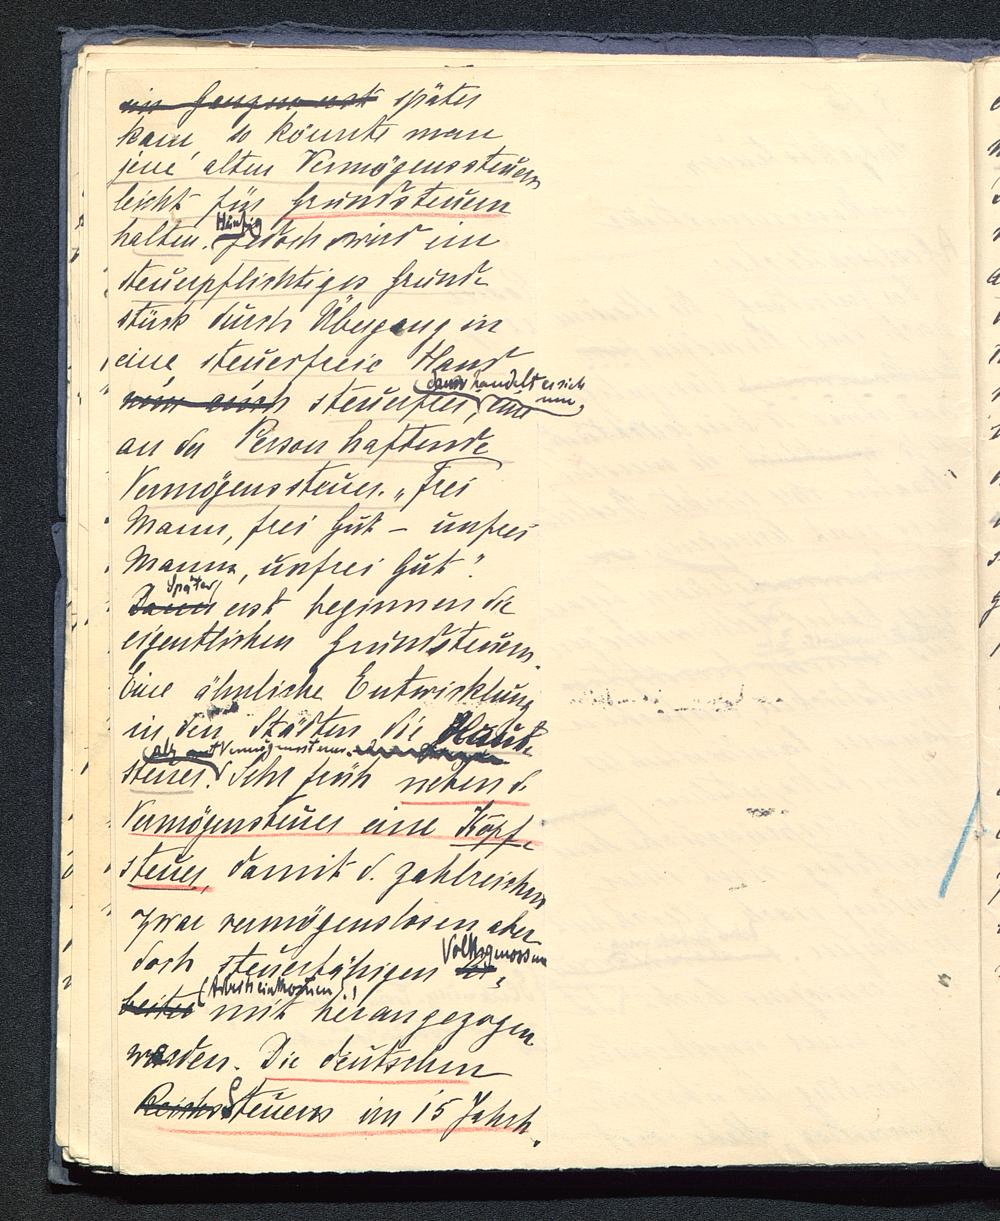 später
kam, so könnte man
jene alten Vermögenssteuern
leicht für Grundsteuern
halten. Häufig jedoch wird ein
steuerpflichtiges Grund-
stück durch Übergang in
eine steuerfreie Hand
nun auch steuerfrei, (dann handelt es sich um
an der Person haftende
Vermögenssteuer. „Frei
Mann, frei Gut – unfrei
Mann, unfrei Gut".
Später erst beginnen die
eigentlichen Grundsteuern.
Eine ähnliche Entwicklung
in den Städten die Haus-
steuer (als Vermögenssteuer. Sehr früh neben d.
Vermögensteuer eine Kopf-
steuer, damit d. zahlreichen
zwar vermögenslosen aber
doch steuerfähigen Volksgenossen
(Arbeitseinkommen!) mit herangezogen
werden. Die deutschen
Reichs Steuern im 15 Jahrh.